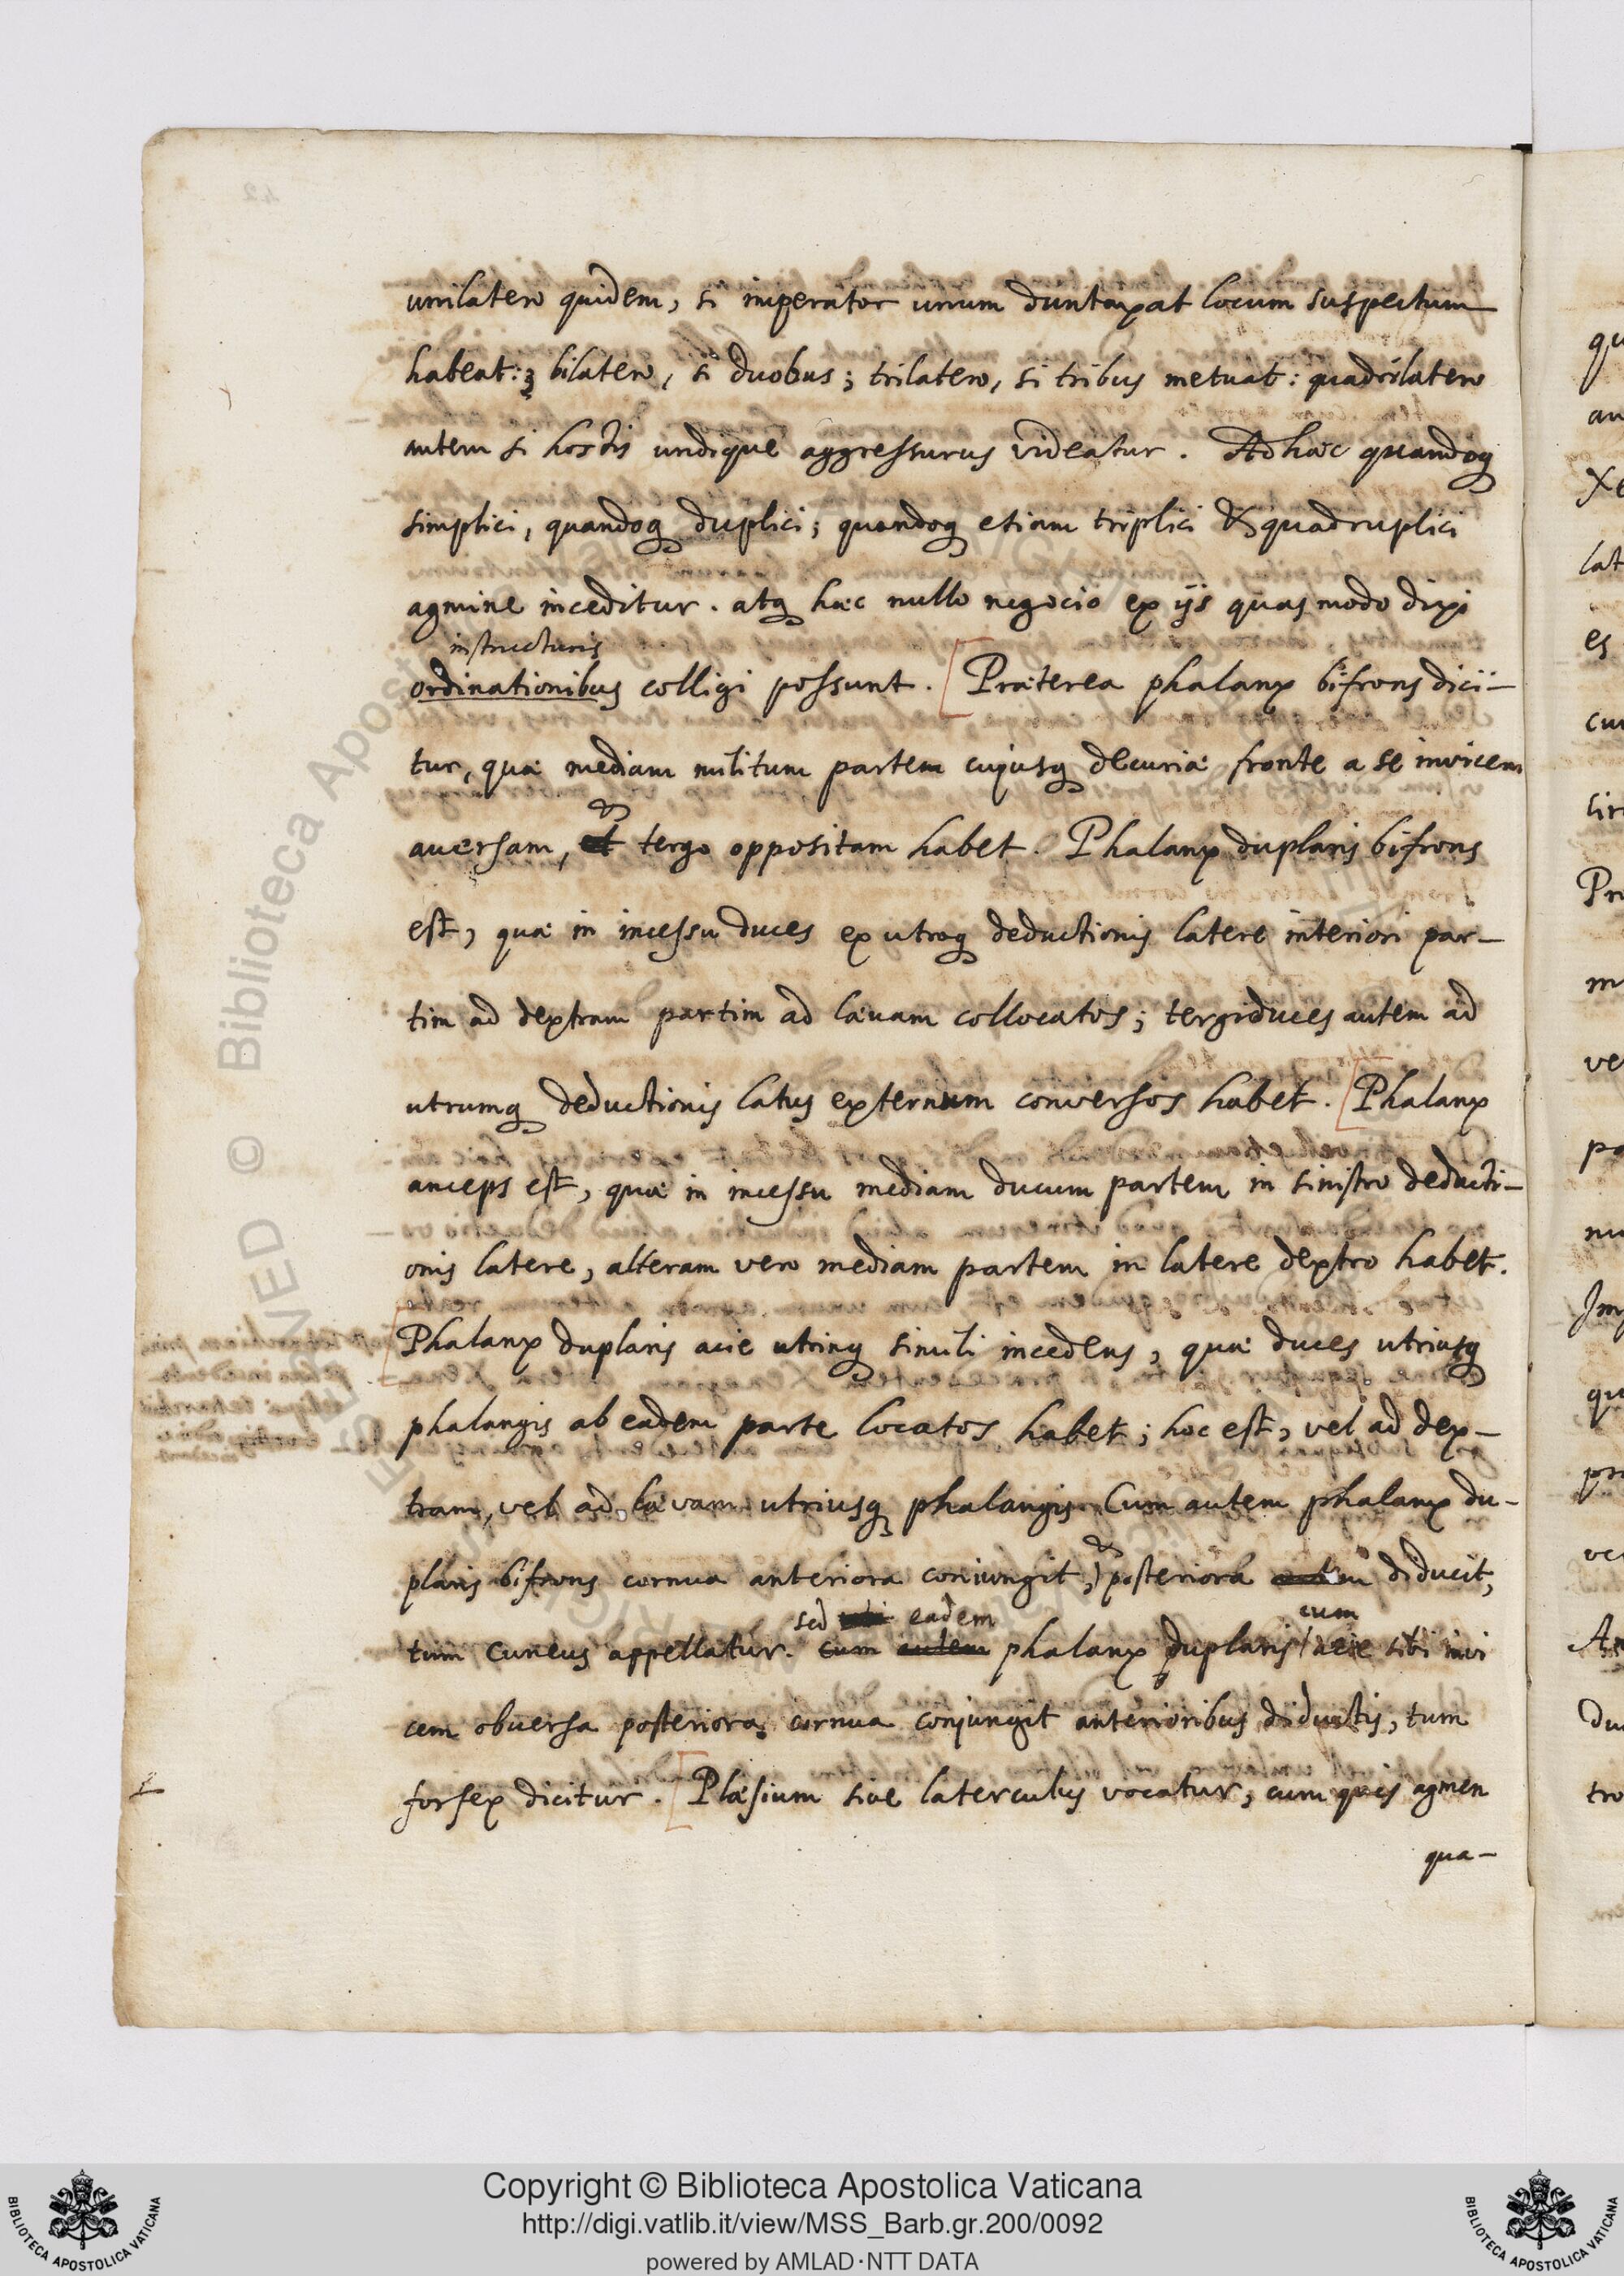 unilatero quidem, si imperator unum duntaxat locum suspectum
habeat: bilatero, si duobus; trilatero, si tribus metuat: quadrilatero
autem si hostis undique aggressurus videatur. Ad hæc quandoq
simplici, quandoq duplici; quandoq etiam triplici & quadruplici
agmine inceditur. atq hæc nullo negocio ex ijs quas modo dixi
instructuris
ordinationibus colligi possunt. [Præterea phalanx bifrons dici-
tur, quæ mediam militum partem cujusq decuriæ fronte a se invicem
&
aversam, et tergo oppositam habet. Phalanx duplaris bifrons
est, quæ in incessu duces ex utroq deductionis latere interiori par-
tim ad dextram partim ad lævam collocatos; tergiduces autem ad
utrumq deductionis latus externum conversos habet. [Phalanx
anceps est, quæ in incessu mediam ducum partem in sinistro deducti-
onis latere, alteram vero mediam partem in latere dextro habet.
[Phalanx duplaris acie utrinq simili incedens, quæ duces utriusq
phalangis ab eadem parte locatos habet; hoc est, vel ad dex-
tram, vel ad lævam utriusq phalangis. Cum autem phalanx du-
&
plaris bifrons cornua anteriora coniungit, posteriora autem diducit,
sed eadem cum
tum cuneus appellatur. cum autem phalanx duplaris acie sibi invi
cem obversa posteriora cornua conjungit anterioribus diductis, tum
forfex dicitur. [Plæsium sive laterculus vocatur, cum quis agmen
qua-
Copyright © Biblioteca Apostolica Vaticana
http://digi.vatlib.it/view/MSS_Barb.gr.200/0092
powered by AMLAD·NTT DATA